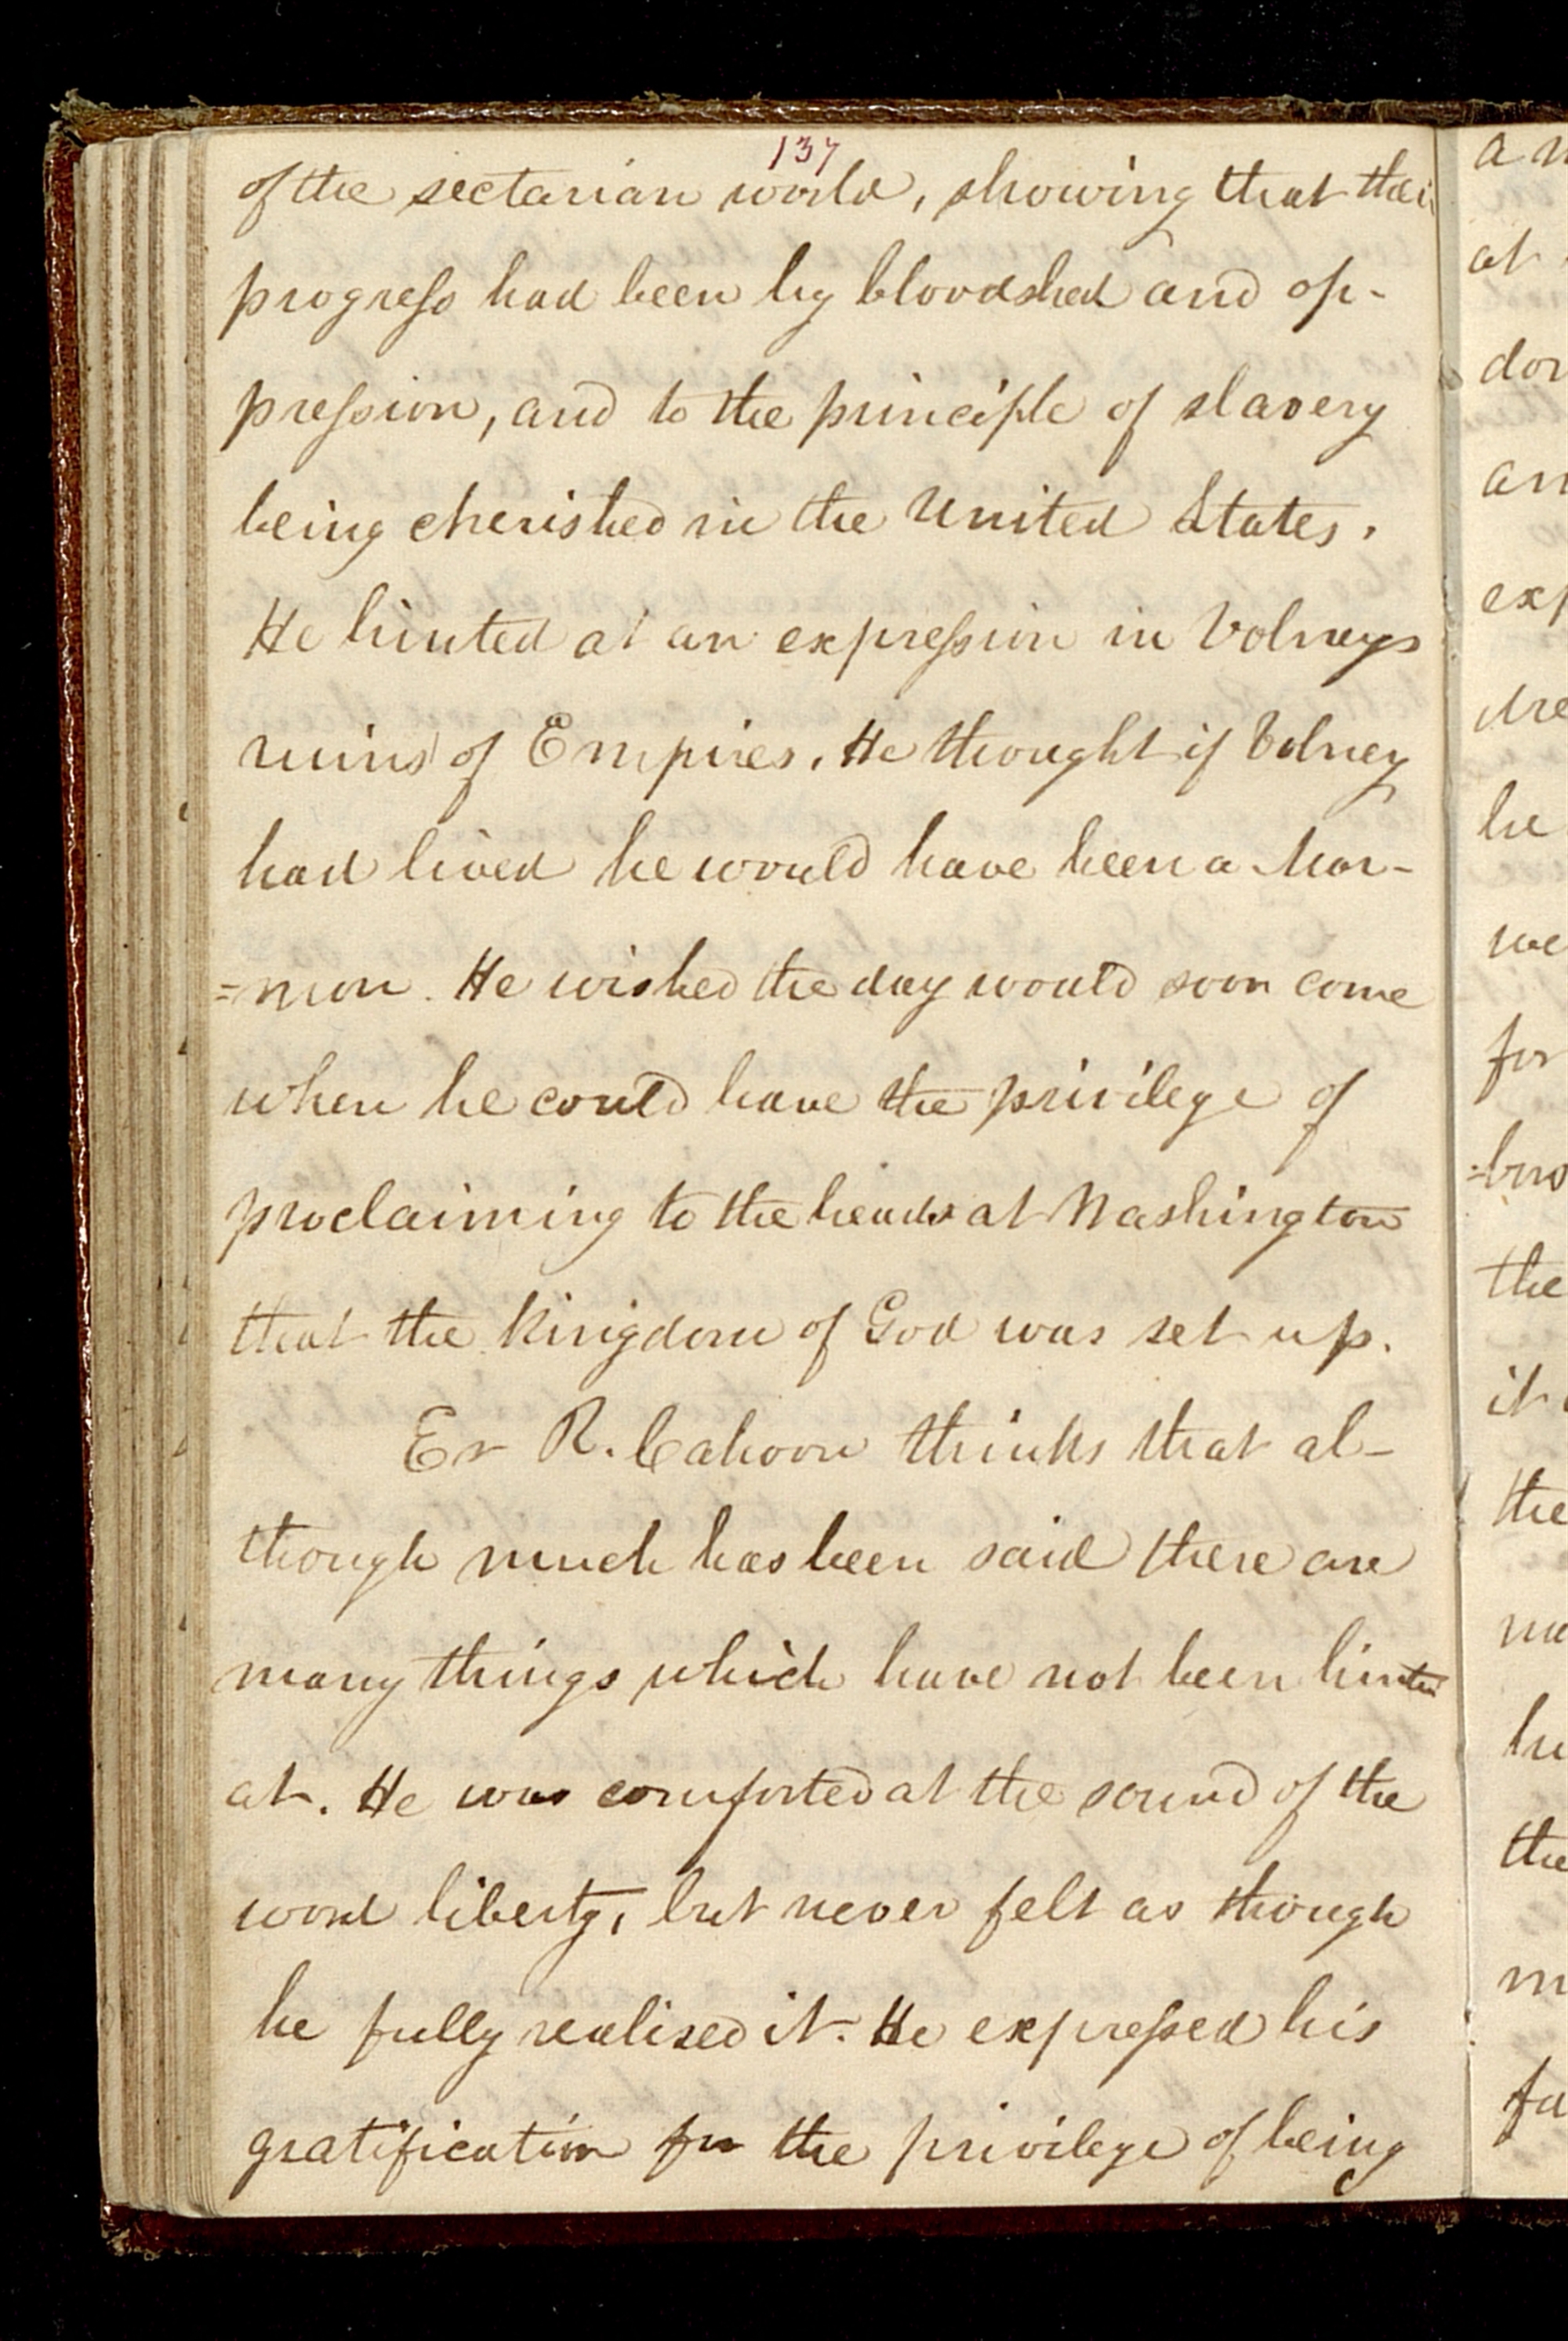 137
of the sectarian world, showing that their
progress had been by bloodshed and op-
pression, and to the principle of slavery
being cherished in the United States.
He hinted at an expression in Volneys
ruins of Empires. He thought if Volney
had lived he would have been a Mor-
=mon. He wished the day would soon come
when he could have the privilege of
proclaiming to the heads at Washington
that the Kingdom of God was set up.
Er R. Cahoon thinks that al-
though much has been said there are
many things which have not been hinted
at. He was comforted at the sound of the
word liberty, but never felt as though
he fully realised it. He expressed his
gratification for the privilege of being
a
at
don
an
exp
he
we
for
the
it
the
the